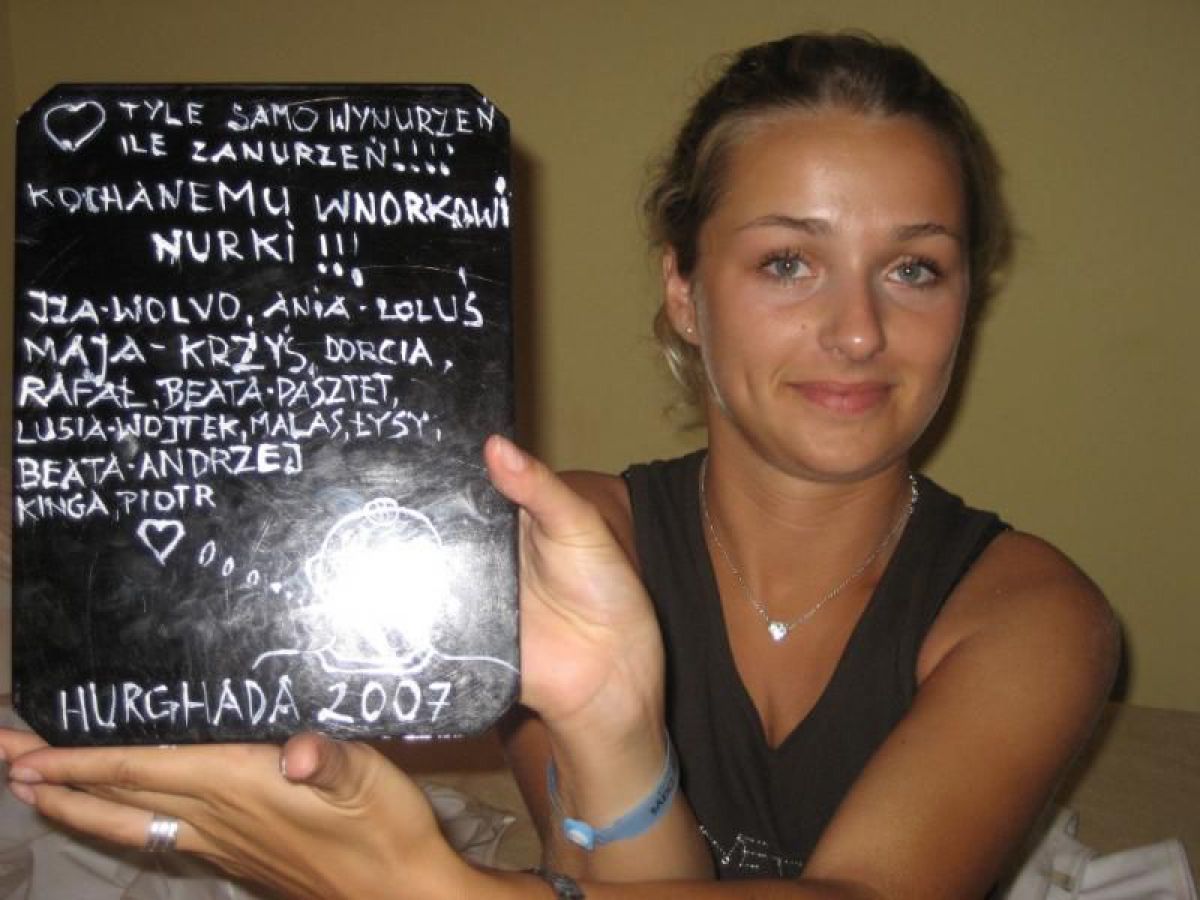 TYLE SAMO WYNURZEŃ
ILE ZANURZEŃ!!!!
KOCHANEMU WNORKOWI
NURKI!!!
IZA-WOLVO, ANIA-LOLUŚ
MAJA-KRZYŚ, DORCIA,
RAFAŁ, BEATA-PASZTET,
LUSIA-WOJTEK, MALAS, ŁYSY,
BEATA-ANDRZEJ
KINGA, PIOTR
HURGHADA 2007